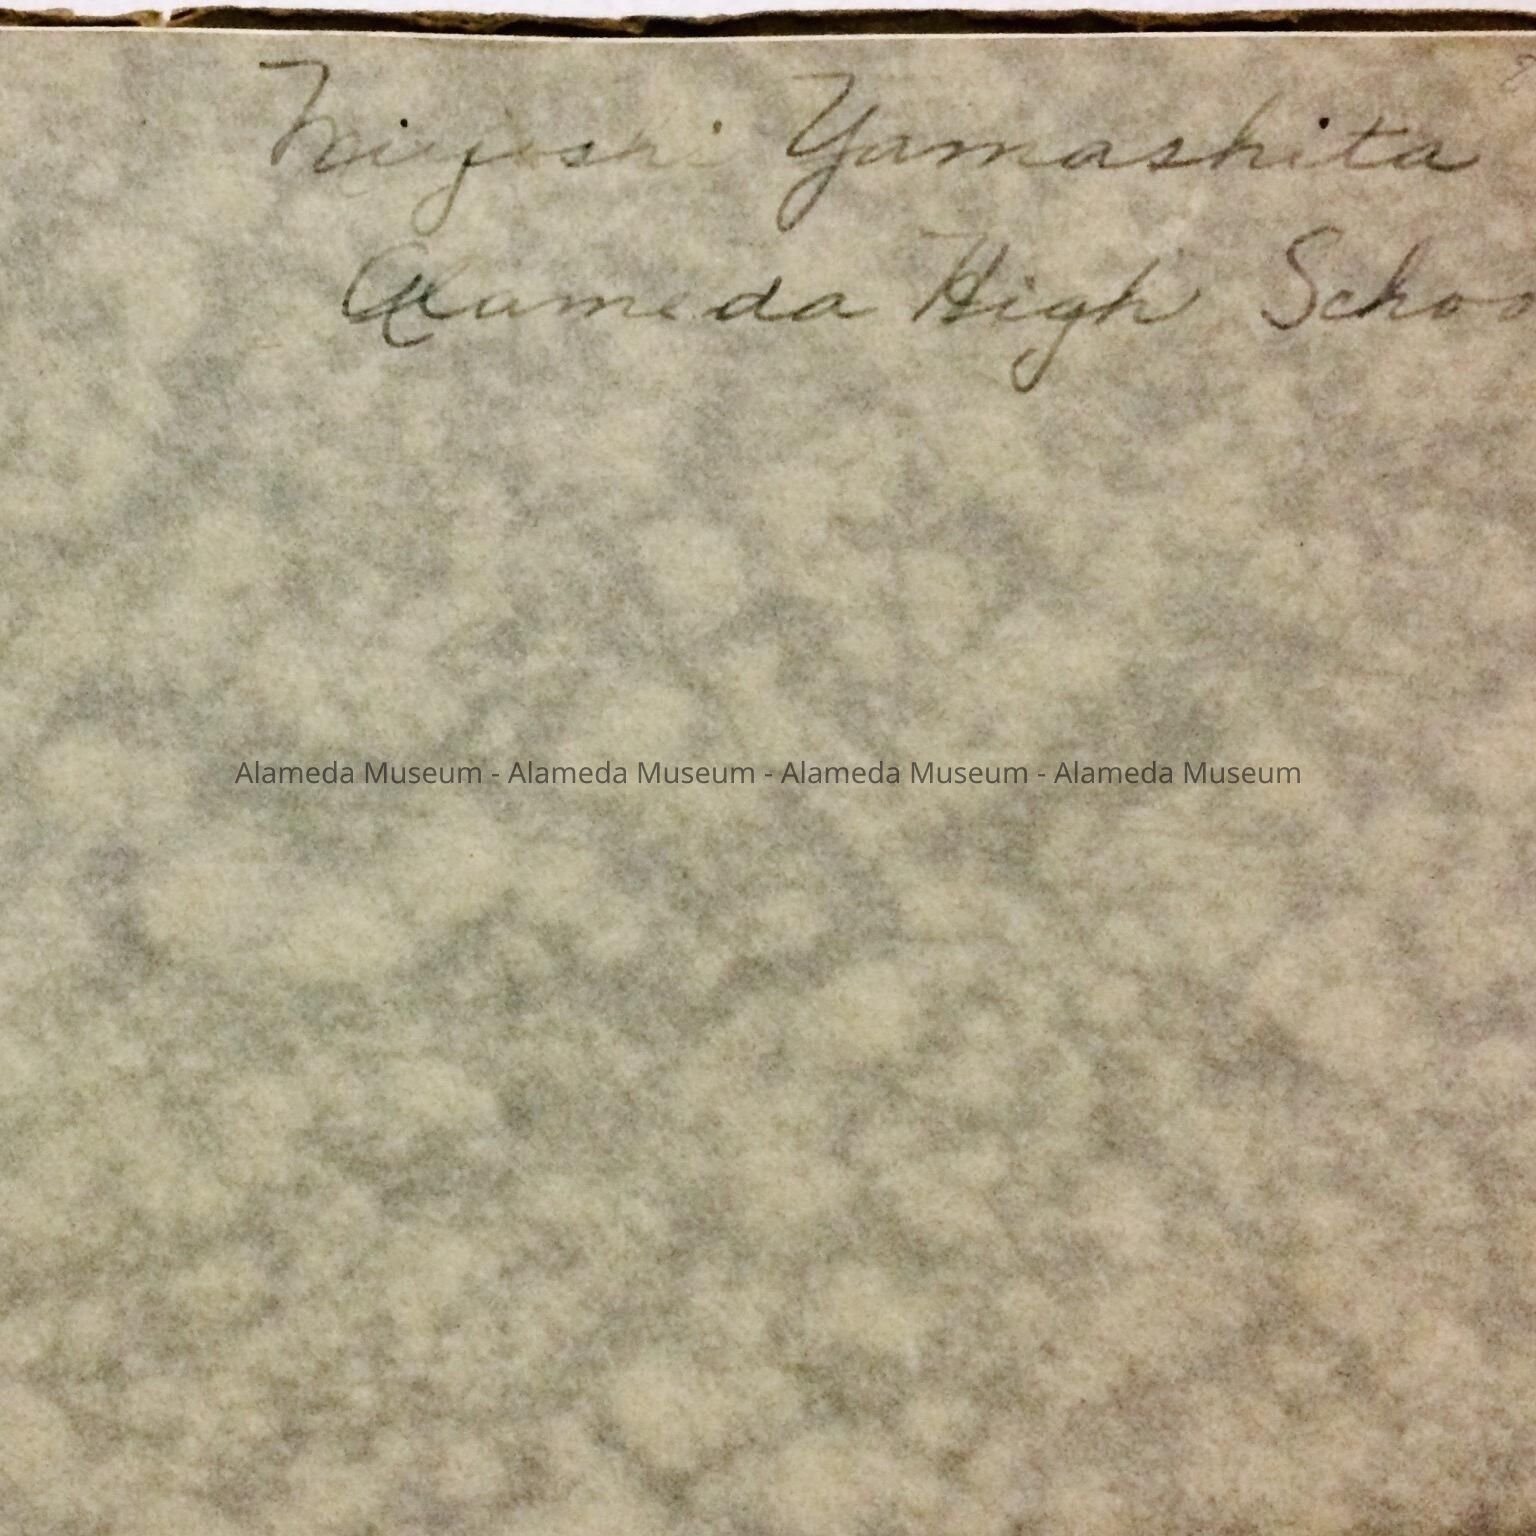 Miyoshi Yamashita
Alameda High Schoo
Alameda Museum - Alameda Museum - Alameda Museum - Alameda Museum